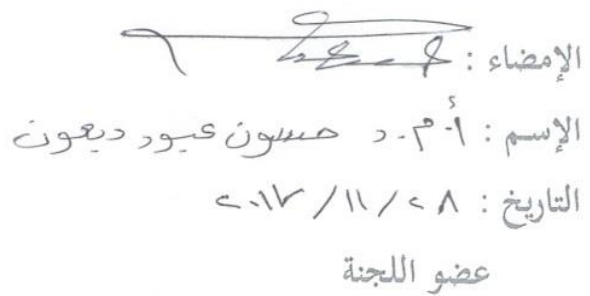 الإمضاء :
الإسم : أ.م.د حسون عبود دبعون
التاريخ : ٢٨/١١/٢٠١٧
عضو اللجنة